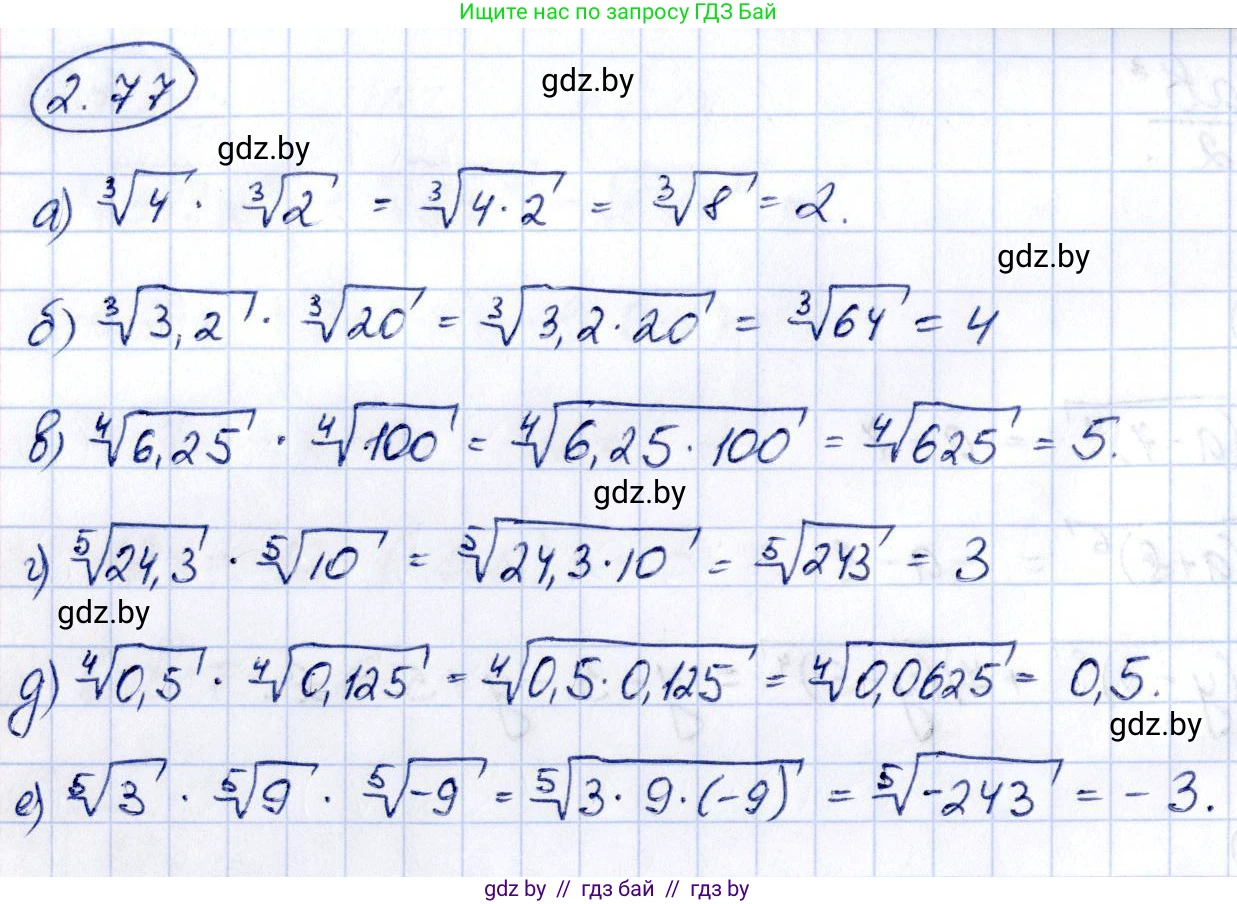 Ищите нас по запросу ГДЗ Бай
2.77
gdz.by
gdz.by
а) ∛4 · ∛2 = ∛(4·2) = ∛8 = 2.
gdz.by
б) ∛3,2 · ∛20 = ∛(3,2·20) = ∛64 = 4
в) ∜6,25 · ∜100 = ∜(6,25·100) = ∜625 = 5.
gdz.by
г) ⁵√24,3 · ⁵√10 = ⁵√(24,3·10) = ⁵√243 = 3
gdz.by
д) ∜0,5 · ∜0,125 = ∜(0,5·0,125) = ∜0,0625 = 0,5.
gdz.by
е) ⁵√3 · ⁵√9 · ⁵√-9 = ⁵√(3·9·(-9)) = ⁵√-243 = -3.
gdz by // гдз бай // гдз by